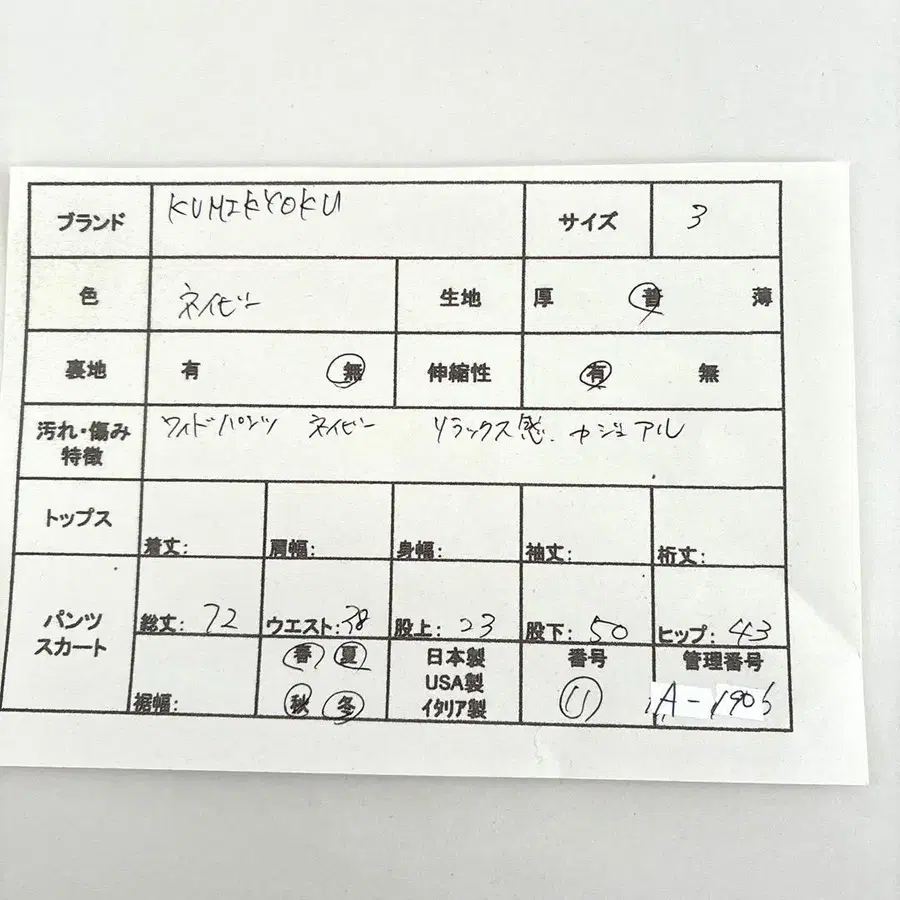 ブランド KUMIKYOKU サイズ 3
色 ネイビー 生地 厚 普 薄
裏地 有 無 伸縮性 有 無
汚れ・傷み 特徴 ワイドパンツ ネイビー リラックス感. カジュアル
トップス 着丈: 肩幅: 身幅: 袖丈: 裄丈:
パンツ スカート 総丈: 72 ウエスト: 38 股上: 23 股下: 50 ヒップ: 43
裾幅: 春 夏 秋 冬 日本製 USA製 イタリア製 番号 11 管理番号 A-1906